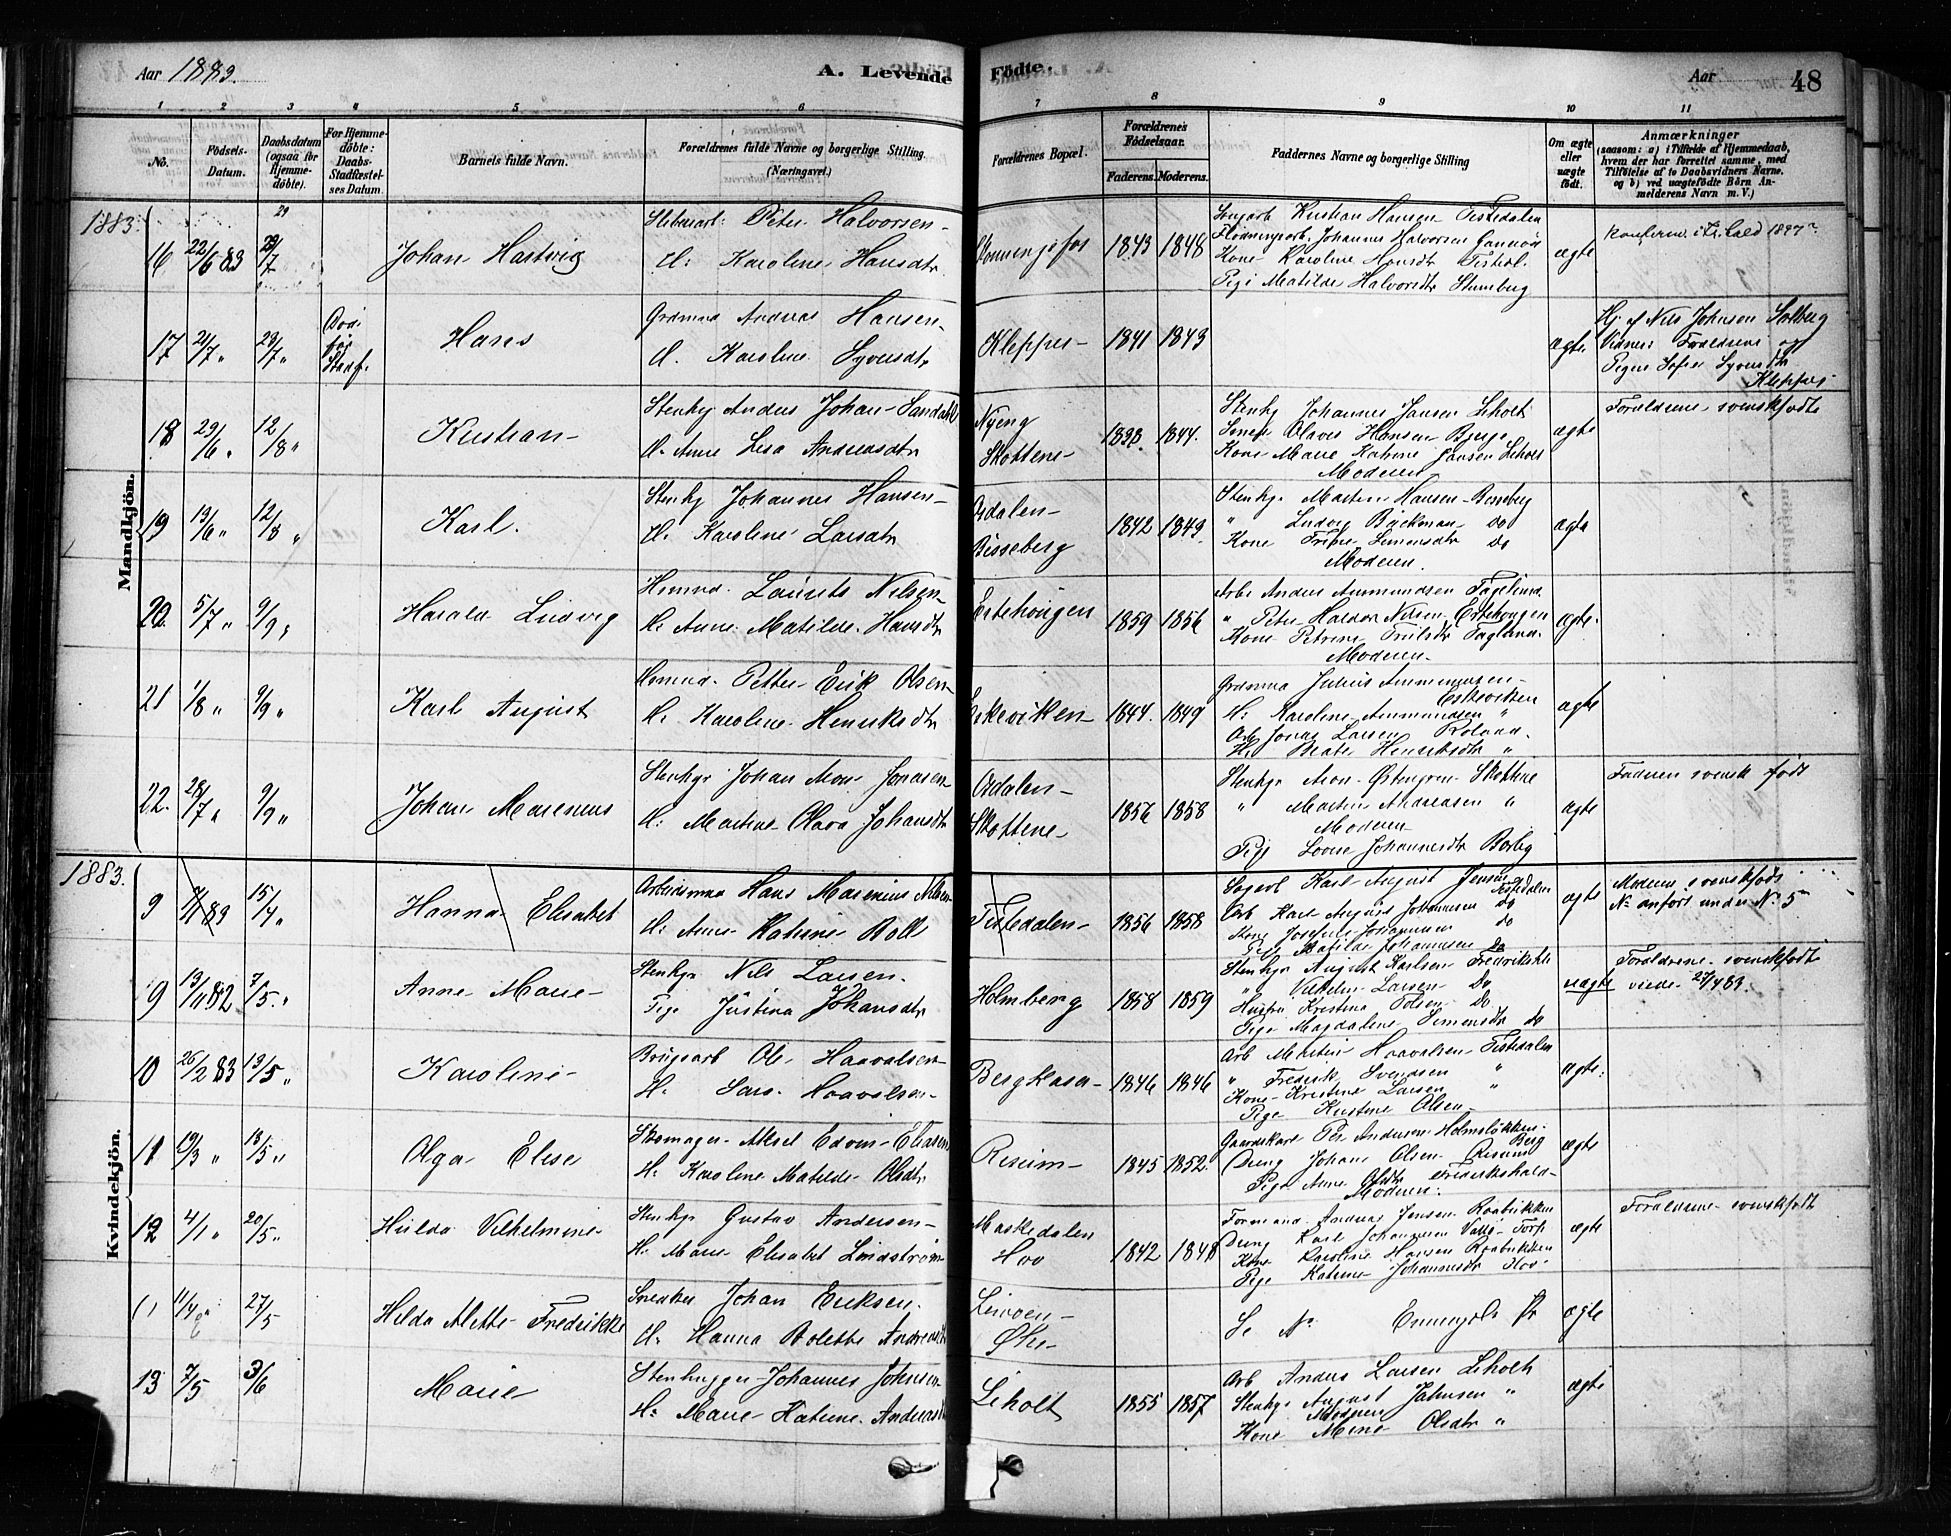 Aar 1883.
A. Levende Fødte.
Aar 48
1 2 3 4 5 6 7 8 9 10 11
No.
Fødsels-Datum.
Daabsdatum (ogsaa for Hjemmedøbte).
For Hjemmedøbte: Daabs-Stadfæstelses Datum.
Barnets fulde Navn.
Forældrenes fulde Navne og borgerlige Stilling. (Næringsvei.)
Forældrenes Bopæl.
Forældrenes Fødselsaar.
Faderens. Moderens.
Faddernes Navne og borgerlige Stilling
Om ægte eller uægte født.
Anmærkninger (saasom: a) i Tilfælde af Hjemmedaab, hvem der har forrettet samme, med Tilføielse af to Daabsvidners Navne, og b) ved uægtefødte Børn Anmelderens Navn m. V.)
Mandkjön.
1883.
16 22/6 83 29/7 Johan Hartvig
Peter Halvorsen
H. Karoline Hansdtr
1843 1848
Kristian Hansen Tistedalen
Johannes Halvorsen
Kone Karoline Hansdtr Tistedl.
Pige Matilde Halvorsdtr Stumberg
ægte
17 21/7 " 29/7 " Hans
Grdmnd Andreas Hansen
H. Karoline Syversdtr
Klepper 1841 1843 ægte
Hj. af Nils Johnsen Solberg
Vidner: Forældrene og
Pigen Sofie Syversdtr
Klepper
18 29/6 " 12/8 " Kristian
Stenhg Anders Johan Sandahl
H. Anne Lisa Andreasdtr
Nyeng
Skottene 1838 1844.
Stenhg Johannes Jansen Liholt
Olaves Hansen Berge
Kone Marie Katrine Jansen Liholt
Moderen
ægte
Forældrene svenskfødte
19 13/6 " 12/8 " Karl.
Stenhg Johannes Hansen
H. Karoline Larsdtr
Ordalen
Bisseberg 1842 1849.
Stenhg. Martin Hansen
" Ludvig Bäckman do
Kone Simensdtr do
Moderen.
ægte
20. 5/7 " 9/9 " Harald Ludvig
Husmnd. Laurits Nilsen
H. Anne Matilde Hansdtr
Ertehougen 1859 1856
Arb. Anders Ammundsen Fagelund
" Peter Halvor Nilsen Ertehougen
Kone Petrine
Moderen
ægte
21 1/8 " 9/9 " Karl August
Husmnd. Petter Erik Olsen
H. Karoline Henriksdtr
Eskeviken 1844. 1849
Grdmnd Julius Ammundsen
Eskeviken
H. Karoline Ammundsen "
Arb. Jonas Larsen
H. Beate Henriksdtr "
ægte
22. 28/7 " 9/9 " Johan Marenius
Stenhgr Johan Aron Jonasen
H. Martine Olava Johansdtr
Ordalen
Skottene 1856 1858
Stenhgr Aron Østengren Skottene
" Martin Andreasen "
Moderen
Pige Lovise Johannesdtr Berby
ægte
Faderen svensk født
Kvindekjön.
1883.
9 15/4 " Hanna Elisabet
Arbeidsmnd Hans Marenius Nilsen
H. Anne Katrine Boll
Tistedalen 1856 1858
Karl August Jensen Tistedalen
Arb Karl August Johannesen do
Kone Josefine Johannesen do
Pige Matilde Johannesen Do
ægte
Moderen svenskfødt
anført under No 5
9 13/11 82 7/5 " Anne Marie
Stenhgr Nils Larsen.
Pige Justina Johansdtr
Holmberg 1858 1859
Stenhgr August Karlsen Fredrikshl.
" Vilhelm Larsen Do
Hustru Kristine Olsen Do
Pige Magdalene Simensdtr do
uægte
Forældrene svenskfødt
viede 27/4 83.
10 26/2 83 13/5 " Karoline
Brugsarb Ole Haavalsen
H. Sara Haavalsen
Bergkasa 1846 1846
Arb Martin Haavalsen Tistedalen
" Fredrik Svendsen "
Kone Kristine Larsen "
Pige Kristine Olsen
ægte
11 19/3 " 13/5 " Olga Elise
Skomager Aksel Edvin Eliasen
H. Karoline Matilde Olsdtr
Risum 1845 1852.
Gaardskarl Per Andersen Holmsløkken
Berg
Dreng Johan Olsen Risum
Pige Anne Olsdtr Fredrikshald
Moderen.
ægte
12 4/1 " 20/5 " Hulda Vilhelmine
Stenhgr Gustav Andersen
H. Marie Elisabet Lindstrøm
Maskedalen
Hov 1842 1848
Formand Andreas Jensen Raabrikken
Dreng Karl Johannesen Torp
Kone Karoline Hansen Raabrikken
Pige Katrine Johannesdtr Hov
ægte
Forældrene svenskfødt
11/4 " 27/5 Hilda Alette Fredrikke
Snedker Johan Eriksen.
H. Hanna Bolette Andreasdtr
Se No
ægte
13 7/5 3/6 Marie
Stenhugger Johannes Johnsen
H. Marie Katrine Andreasdtr
Liholt 1855 1857
Arb Anders Larsen Liholt
Stenhgr August Johnsen "
Moderen
Kone Mina Olsdtr "
ægte